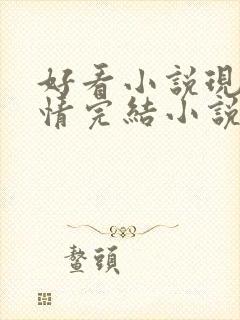 好看小說現
情完結小說
鰲頭